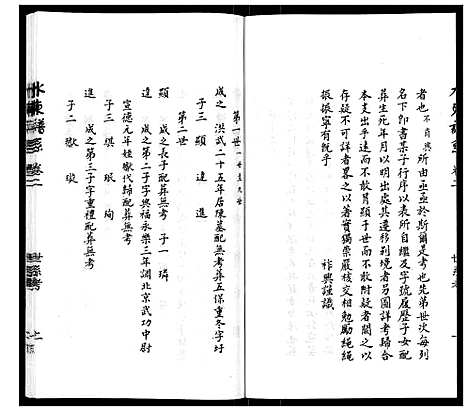 者也不肖興所由亟亟於斯爾是考也先第世次每列
名下即書某子行序以表所自繼及字號履歷子女配
葬生死年月以明出處其遷移到境者另圖詳考歸合
本支出乎遠而不敢月顯于世而不敢附疑者闕之以
存疑不可詳者亙之以著實獨崇嚴核交相勉勵繩繩
振振寧有既乎
祚興謹識
第一世
成之 洪武二十五年后陳墓配無考葬五保重冬字圩
子三 顯 達 進
第二世
顯 成之長子配葬無考 子一 璘
達 成之第二子字與福永樂三年調北京武功中尉
宣德元年姪獻代歸配葬無考
子三 琪 珉 珣
進 成之第三子字重禮配葬無考
子二 獻 璇
世系考